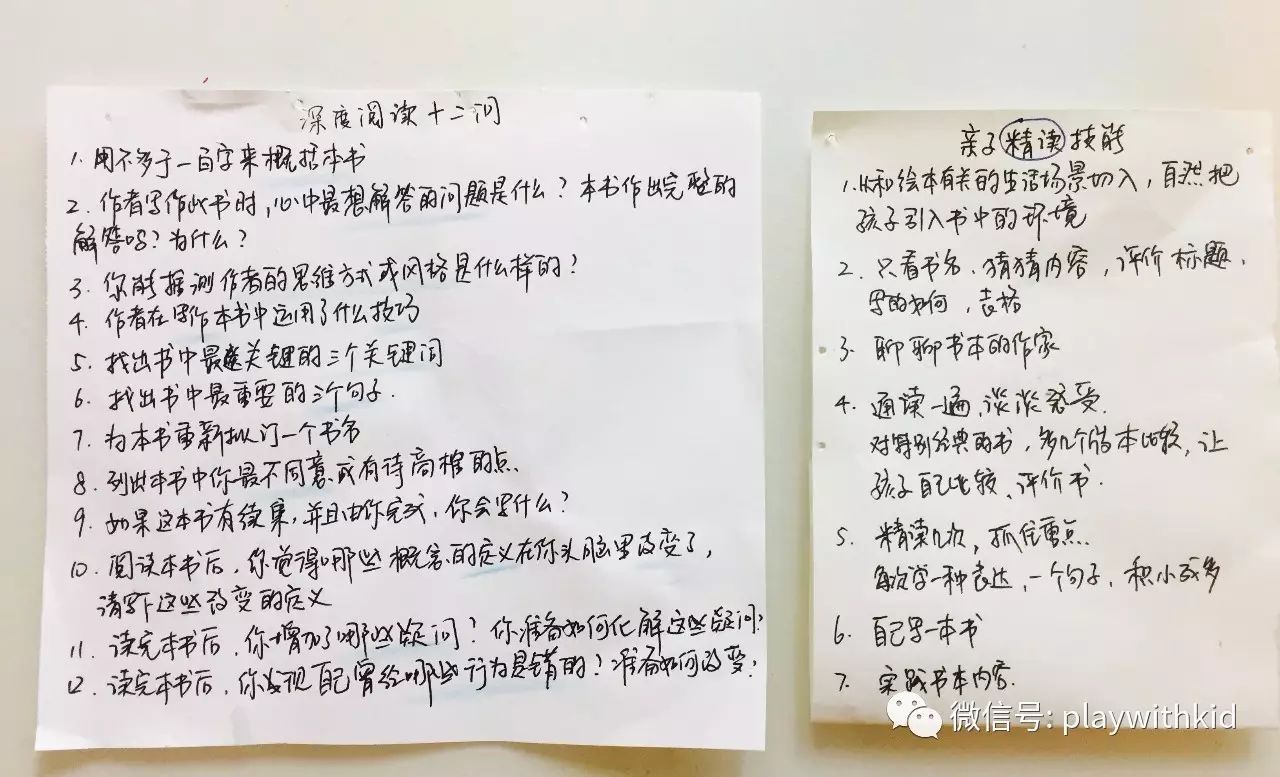 深度阅读十二问
1. 用不多于一百字来概括本书
2. 作者写作此书时,心中最想解答的问题是什么?本书作出完整的
解答吗?为什么?
3. 你能推测作者的思维方式或风格是什么样的?
4. 作者在写作本书中运用了什么技巧
5. 找出书中最关键的三个关键词
6. 找出书中最重要的三个句子.
7. 为本书重新拟订一个书名
8. 列出本书中你最不同意或有待商榷的点.
9. 如果这本书有续集,并且由你完成,你会写什么?
10. 阅读本书后,你觉得哪些概念的定义在你头脑里改变了,
请写下这些改变的定义
11. 读完本书后,你增加了哪些疑问?你准备如何化解这些疑问?
12. 读完本书后,你发现自己曾经哪些行为是错的?准备如何改变?
亲子精读技能
1. 从和绘本有关的生活场景切入,自然把
孩子引入书中的环境
2. 只看书名、猜猜内容,评价标题、
写的如何,表格
3. 聊聊书本的作家
4. 通读一遍,谈谈感受.
对特别经典的书,多几个版本比较,让
孩子自己比较、评价书.
5. 精读几次,抓住重点.
每次学一种表达,一个句子,积小成多
6. 自己写一本书
7. 实践书本内容.
微信号: playwithkid